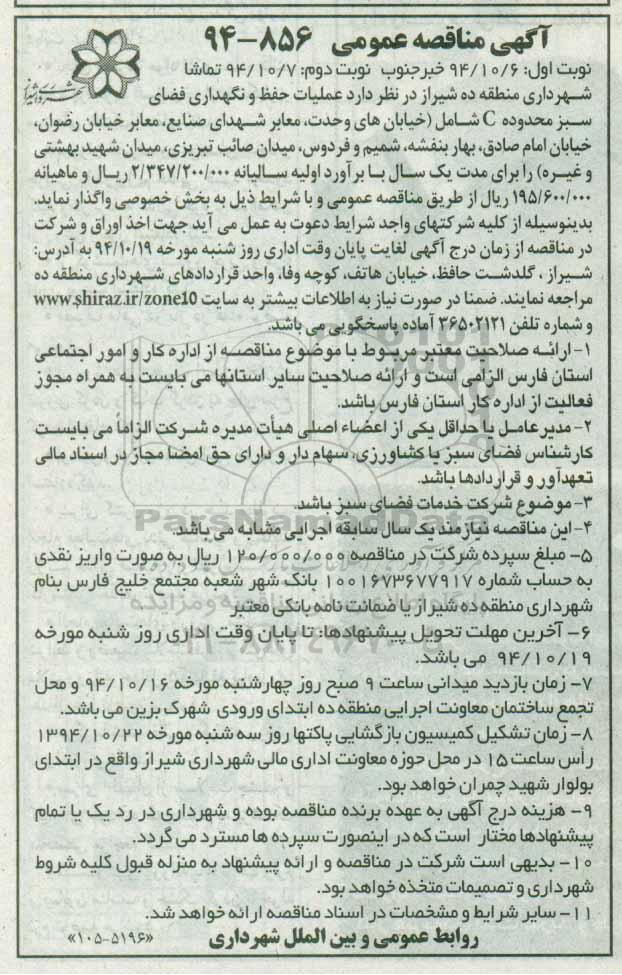 آگهی مناقصه عمومی ۸۵۶-۹۴
نوبت اول: ۹۴/۱۰/۶ خبرجنوب نوبت دوم: ۹۴/۱۰/۷ تماشا
شهرداری منطقه ده شیراز در نظر دارد عملیات حفظ و نگهداری فضای
سبز محدوده C شامل (خیابان های وحدت، معابر شهدای صنایع، معابر خیابان رضوان،
خیابان امام صادق، بهار بنفشه، شمیم و فردوس، میدان صائب تبریزی، میدان شهید بهشتی
و غیره) را برای مدت یک سال با برآورد اولیه سالیانه ۲/۳۴۷/۲۰۰/۰۰۰ ریال و ماهیانه
۱۹۵/۶۰۰/۰۰۰ ریال از طریق مناقصه عمومی و با شرایط ذیل به بخش خصوصی واگذار نماید.
بدینوسیله از کلیه شرکتهای واجد شرایط دعوت به عمل می آید جهت اخذ اوراق و شرکت
در مناقصه از زمان درج آگهی لغایت پایان وقت اداری روز شنبه مورخه ۹۴/۱۰/۱۹ به آدرس:
شیراز ، گلدشت حافظ، خیابان هاتف، کوچه وفا، واحد قراردادهای شهرداری منطقه ده
مراجعه نمایند. ضمنا در صورت نیاز به اطلاعات بیشتر به سایت www.shiraz.ir/zone10
و شماره تلفن ۳۶۵۰۲۱۲۱ آماده پاسخگویی می باشد.
۱- ارائه صلاحیت معتبر مربوط با موضوع مناقصه از اداره کار و امور اجتماعی
استان فارس الزامی است و ارائه صلاحیت سایر استانها می بایست به همراه مجوز
فعالیت از اداره کار استان فارس باشد.
۲- مدیرعامل یا حداقل یکی از اعضاء اصلی هیأت مدیره شرکت الزاماً می بایست
کارشناس فضای سبز یا کشاورزی، سهام دار و دارای حق امضا مجاز در اسناد مالی
تعهدآور و قراردادها باشد.
۳- موضوع شرکت خدمات فضای سبز باشد.
۴- این مناقصه نیازمند یک سال سابقه اجرایی مشابه می باشد.
ParsNamadData
۵- مبلغ سپرده شرکت در مناقصه ۱۲۰/۰۰۰/۰۰۰ ریال به صورت واریز نقدی
به حساب شماره ۱۰۰۱۶۷۳۶۷۷۹۱۷ بانک شهر شعبه مجتمع خلیج فارس بنام
شهرداری منطقه ده شیراز یا ضمانت نامه بانکی معتبر
۶- آخرین مهلت تحویل پیشنهادها: تا پایان وقت اداری روز شنبه مورخه
۹۴/۱۰/۱۹ می باشد.
۷- زمان بازدید میدانی ساعت ۹ صبح روز چهارشنبه مورخه ۹۴/۱۰/۱۶ و محل
تجمع ساختمان معاونت اجرایی منطقه ده ابتدای ورودی شهرک بزین می باشد.
۸- زمان تشکیل کمیسیون بازگشایی پاکتها روز سه شنبه مورخه ۱۳۹۴/۱۰/۲۲
رأس ساعت ۱۵ در محل حوزه معاونت اداری مالی شهرداری شیراز واقع در ابتدای
بولوار شهید چمران خواهد بود.
۹- هزینه درج آگهی به عهده برنده مناقصه بوده و شهرداری در رد یک یا تمام
پیشنهادها مختار است که در اینصورت سپرده ها مسترد می گردد.
۱۰- بدیهی است شرکت در مناقصه و ارائه پیشنهاد به منزله قبول کلیه شروط
شهرداری و تصمیمات متخذه خواهد بود.
۱۱- سایر شرایط و مشخصات در اسناد مناقصه ارائه خواهد شد.
روابط عمومی و بین الملل شهرداری «۱۰۵-۵۱۹۶»